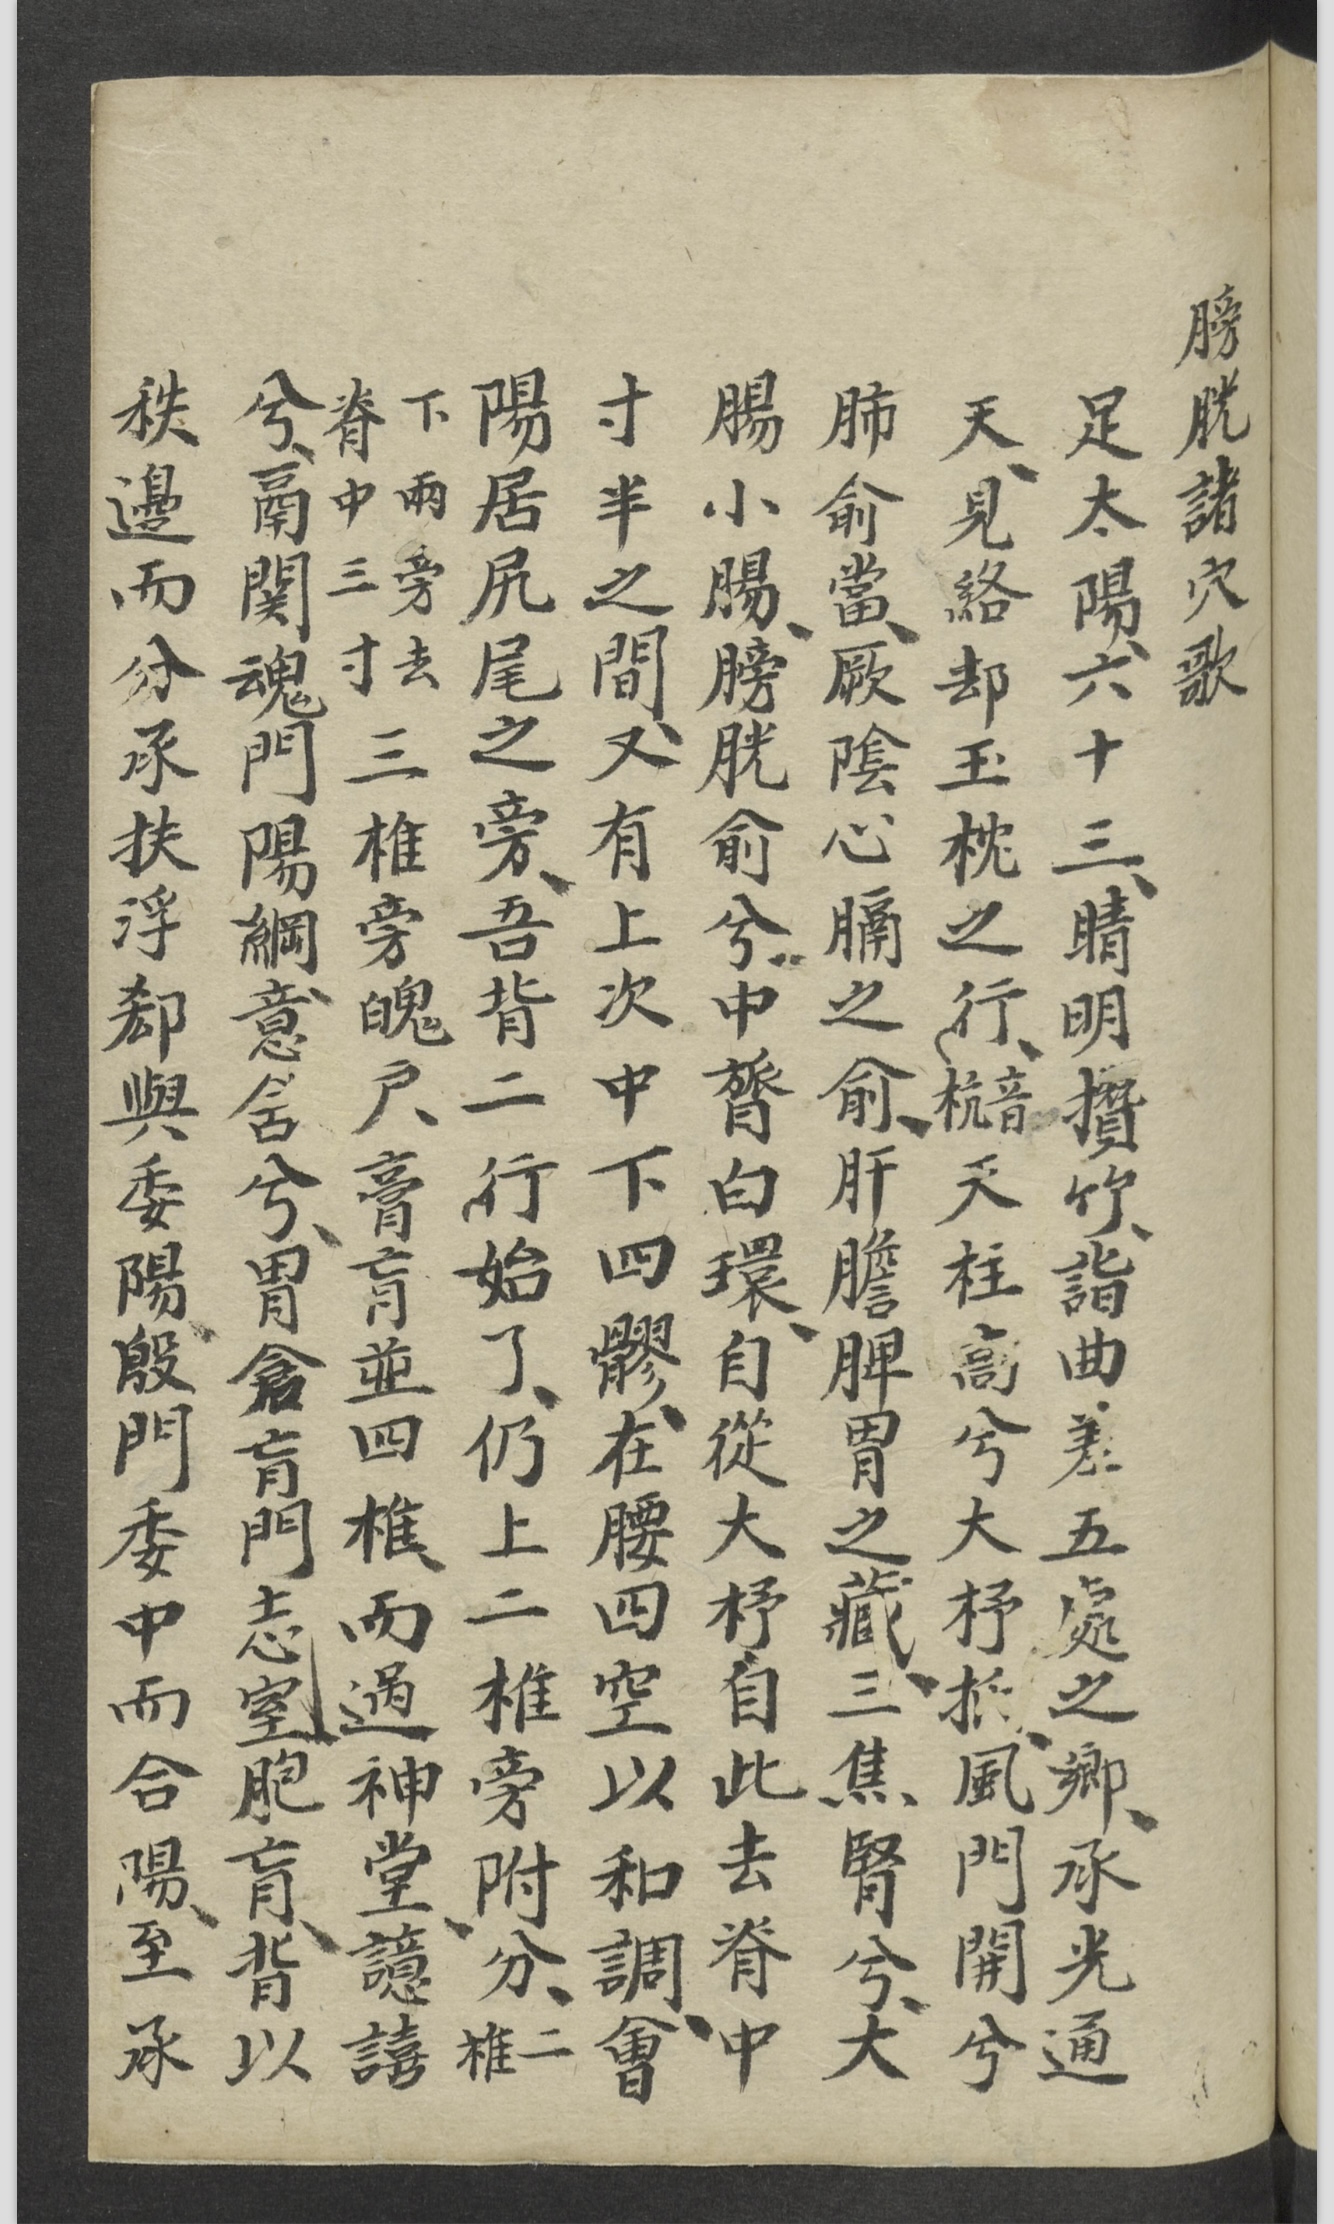 膀胱諸穴歌
足太陽、六十三、睛明攢竹、詣曲差五處之鄉、承光通
天、見絡却玉枕之行、音杭天柱高兮大杼抵、風門開兮
肺俞當、厥陰心膈之俞、肝膽脾胃之藏、三焦腎兮、大
腸小腸、膀胱俞兮、中膂白環、自從大杼自此去脊中
寸半之間、又有上次中下四髎、在腰四空以和調、會
陽居尻尾之旁、吾背二行始了、仍上二椎旁附分、二椎
下兩旁去脊中三寸三椎旁魄户、膏肓並四椎、而過神堂、譩譆
兮、鬲関魂門陽綱、意舍兮、胃倉肓門志室胞肓、背以
秩邊而分承扶浮郄與委陽、殷門委中而合陽、至承